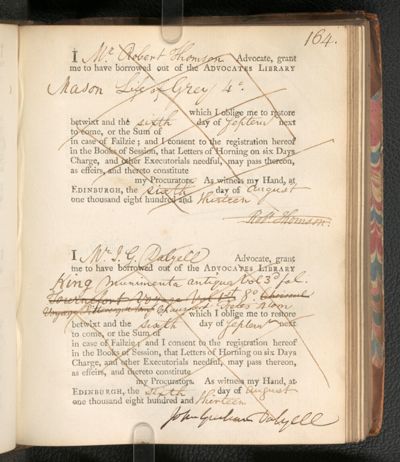 164.
I Mr. Robert Thomson Advocate, grant
me to have borrowed out of the ADVOCATES LIBRARY
Mason Life of Grey 4o.
which I oblige me to restore
betwixt and the sixth day of Septem next
to come, or the Sum of
in case of Failzie; and I consent to the registration hereof
in the Books of Session, that Letters of Horning on six Days
Charge, and other Executorials needful, may pass thereon,
as effeirs, and thereto constitute
my Procurators. As witness my Hand, at
EDINBURGH, the sixth day of August
one thousand eight hundred and thirteen
Robt. Thomson.
I Mr. J. G. Dalyell Advocate, grant
me to have borrowed out of the ADVOCATES LIBRARY
King Munimenta antiqua Vol 3d fol.
Tournefort Voyage Vol 1st 8o
which I oblige me to restore
betwixt and the sixth day of Septem next
to come, or the Sum of
in case of Failzie; and I consent to the registration hereof
in the Books of Session, that Letters of Horning on six Days
Charge, and other Executorials needful, may pass thereon,
as effeirs, and thereto constitute
my Procurators. As witness my Hand, at
EDINBURGH, the sixth day of August
one thousand eight hundred and thirteen
John Graham Dalyell